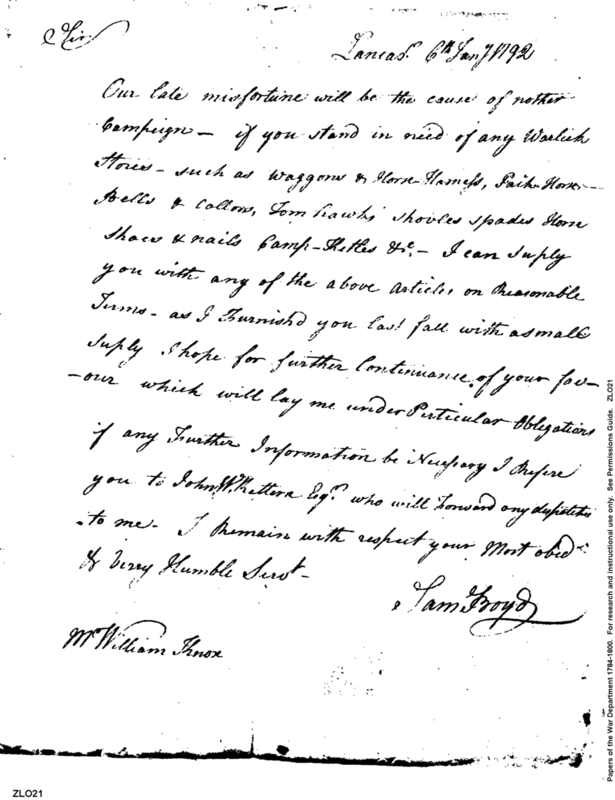 Sir
Lancasr. 6th Jany 1792
Our late misfortune will be the cause of nother
Campeign — if you stand in need of any Warlick
Stores - such as waggons & Horse Harness, Pack Horse —
Bells & Collors, Tom hawks shovles spades Horse
Shoes & nails Camp - Ketles &c. - I can Suply
you with any of the above Articles on Reasonable
Terms - as I Furnishd you last fall with a small
Suply I hope for further Continuance of your fav—
—our which will lay me under Perticular Obligations
if any Further Information be Necessary I Refere
you to John W. Kittera Esqr. who will Forward any dispatches
to me - I Remain with respect your Most obedt
& Verry Humble Servt -
Sam Boyd
Mr William Knox
ZLO21
Papers of the War Department 1784-1800. For research and instructional use only. See Permissions Guide. ZLO21